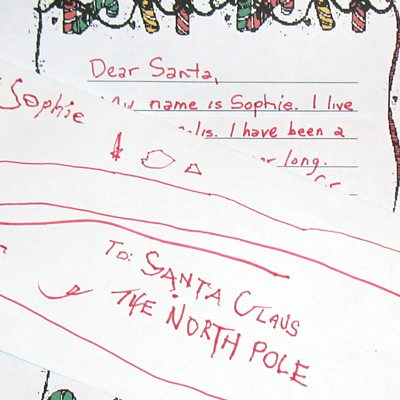 Dear Santa,
My name is Sophie. I live
lis. I have been a
long.
Sophie
To: SANTA CLAUS
THE NORTH POLE